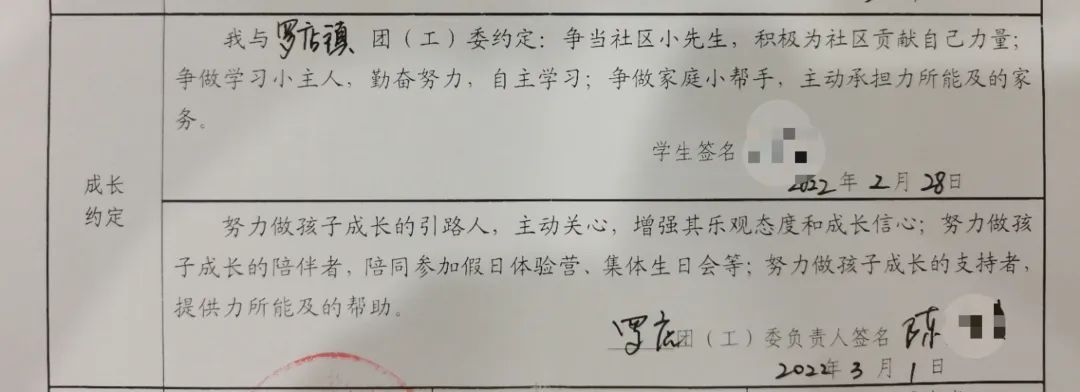 我与罗店镇 团（工）委约定：争当社区小先生，积极为社区贡献自己力量；
争做学习小主人，勤奋努力，自主学习；争做家庭小帮手，主动承担力所能及的家
务。
学生签名
2022年2月28日
成长
约定
努力做孩子成长的引路人，主动关心，增强其乐观态度和成长信心；努力做孩
子成长的陪伴者，陪同参加假日体验营、集体生日会等；努力做孩子成长的支持者，
提供力所能及的帮助。
罗店团（工）委负责人签名 陈
2022年3月1日